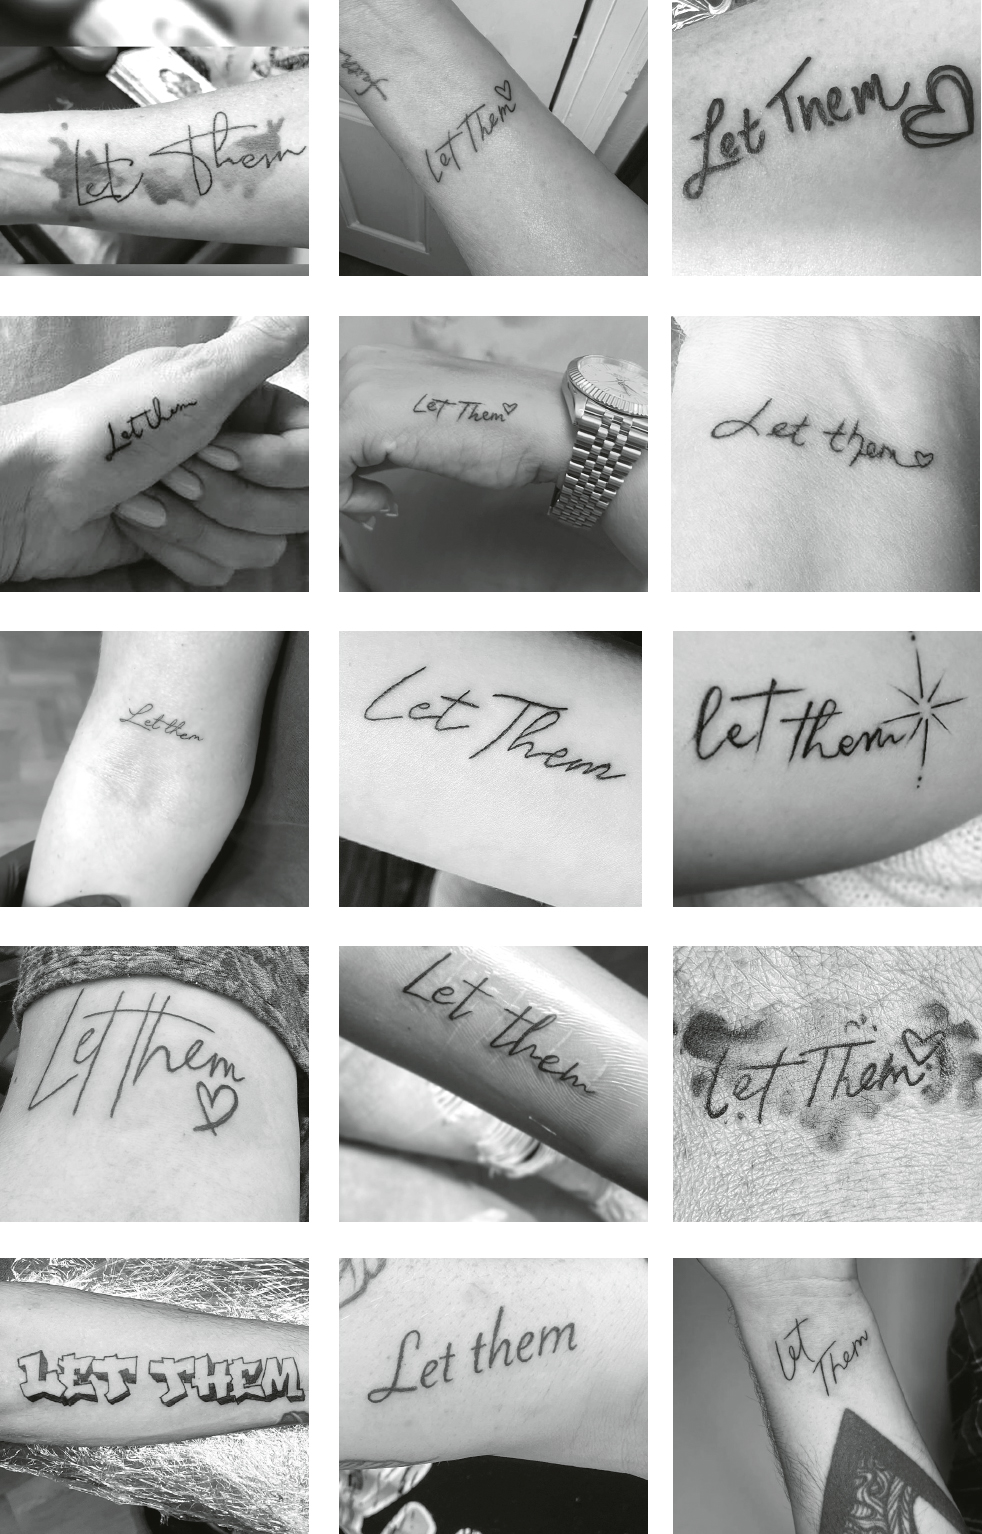 Let Them
Let Them
Let Them
Let them
Let Them
Let them
Let them
Let Them
let them
Let them
Let them
Let Them
LET THEM
Let them
Let
Them